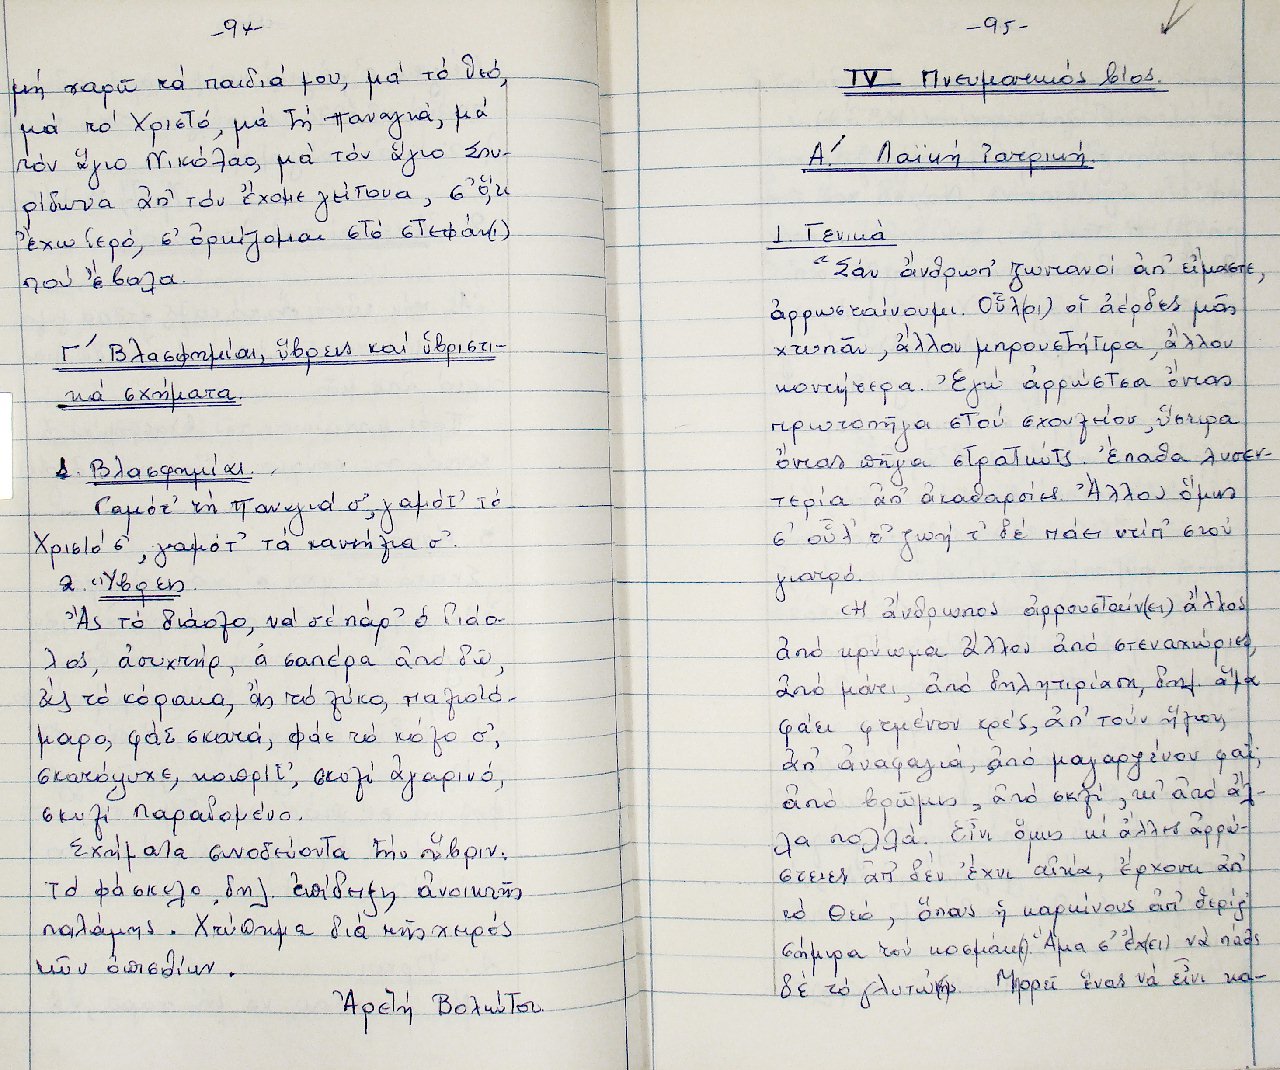 -94-
μή χαρῶ τά παιδιά μου, μά τό θεό,
μά τό Χριστό, μά τή Παναγιά, μά
τόν ἅγιο Νικόλαο, μά τόν ἅγιο Σπυ-
ρίδωνα ἀπ' τόν ἔχομε γείτονα, σ' ὅ,τι
ἔχω ἱερό, σ' ὁρκίζομαι στό στεφάν(ι)
πού ἔβαλα.
Γ'. Βλασφημίαι, ὕβρεις καί ὑβριστι-
κά σχήματα.
1. Βλασφημίαι.
Γαμότ' τή Παναγιά σ', γαμότ' τό
Χριστό σ', γαμότ' τά καντήλια σ'.
2. Ὕβρεις.
Ἄς τό διάολο, νά σέ πάρ' ὁ διάο-
λος, ἀσυχτήρ, ἀ σαπέρα ἀπό δῶ,
ἄς τό κόρακα, ἄς τό λύκο, παλιοτό-
μαρο, φάε σκατά, φάε τό κόλο σ',
σκατόψυχε, κοπρίτ', σκυλί ἀγαρινό,
σκυλί παραδομένο.
Σχήματα συνοδεύοντα τήν ὕβριν:
Τό φάσκελο, δηλ. ἐπίδειξη ἀνοικτῆς
παλάμης. Χτύπημα διά τῆς χειρός
τῶν ὀπισθίων.
Ἀρετή Βολιώτου
-95-
IV Πνευματικός βίος.
Α.' Λαϊκή Ἰατρική.
1. Γενικά
"Σάν ἄνθρωπ' ζωντανοί ἀπ' εἴμαστε,
ἀρρωσταίνουμι. Οὗλ(οι) οἱ ἀέρδες μᾶς
χτυπᾶν, ἄλλου μπρουστήτιρα, ἄλλου
κοντήτερα. Ἐγώ ἀρρώστσα ὄντας
πρωτοπῆγα στού σχουλειόυ, ὕστιρα
ὄντας πῆγα στρατιώτς. Ἔπαθα λυσεν-
τερία ἀπ' ἀκαθαρσίες. Ἄλλου ὅμως
σ' οὗλ' τ' ζωή τ' δέ πάει ντίπ' στού
γιατρό.
Ἡ ἄνθρωπος ἀρρουσταίν(ει) ἄλλος
ἀπό κρύωμα ἄλλου ἀπό στεναχώριες,
ἀπό μάτι, ἀπό δηλητιρίαση, δηλ ἅμα
φάει φτμένου κρές, ἀπ' τούν ἥλιου,
ἀπ' ἀναφαγιά, ἀπό μαγαρζμένου φαΐ,
ἀπό βρῶμες, ἀπό σκλί, κι' ἀπό ἄλ-
λα πολλά. Εἶνι ὅμως κί ἄλλες ἀρρώ-
στειες ἀπ' δέν ἔχνι αἰτία, ἔρχοντι ἀπ'
τό Θεό, ὅπως ἡ καρκίνους ἀπ' θερίζ'
σήμιρα τού κοσμάκ(η). Ἅμα σ' ἔχ(ει) νά πάθς
δέ τό γλυτών(ης). Μπορεῖ ἕνας νά εἶνι κα-